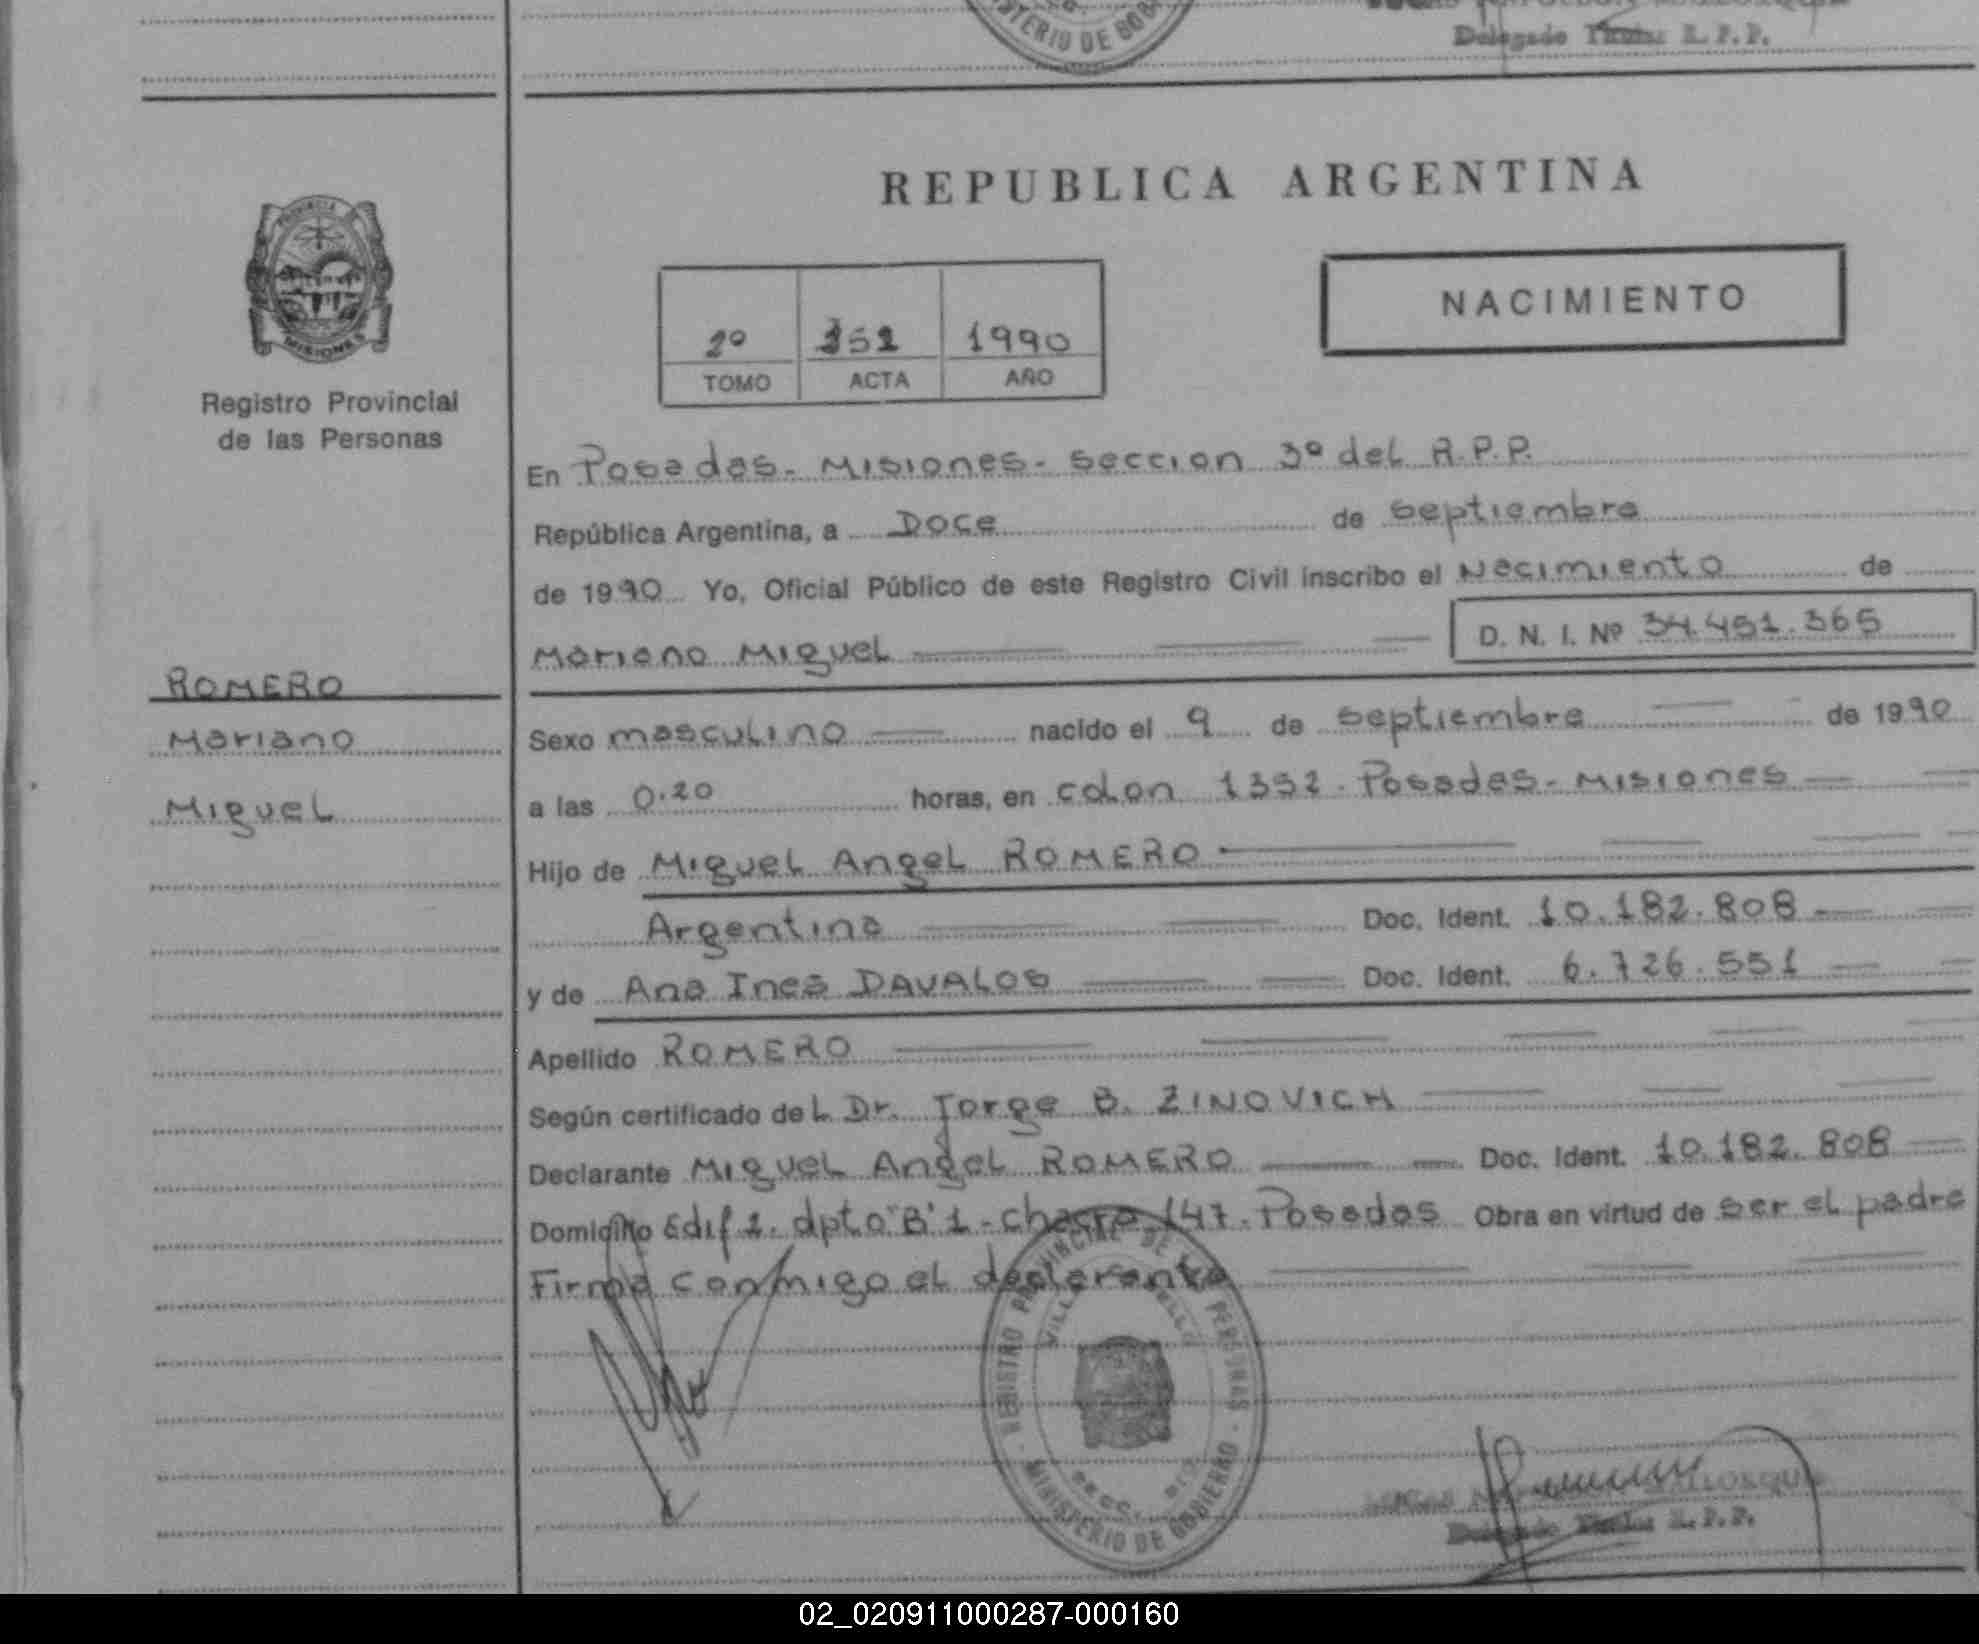 MINISTERIO DE GOBI
Delegado Titular R. P. P.
PROVINCIA DE
MISIONES
Registro Provincial
de las Personas
REPUBLICA ARGENTINA
NACIMIENTO
2º 1990
TOMO ACTA AÑO
En Posadas - Misiones - Seccion 3º del R.P.P.
República Argentina, a Doce de septiembre
de 1990 Yo, Oficial Público de este Registro Civil inscribo el Nacimiento de
Mariano Miguel D. N. I. Nº 34.451.365
ROMERO
Mariano
Miguel
Sexo masculino nacido el 9 de septiembre de 1990
a las 0.20 horas, en colon 1352 - Posadas - Misiones
Hijo de Miguel Angel ROMERO
Argentina Doc. Ident. 10.182.808
y de Ana Ines DAVALOS Doc. Ident. 6.726.551
Apellido ROMERO
Según certificado del Dr. Jorge B. ZINOVICH
Declarante Miguel Angel ROMERO Doc. Ident. 10.182.808
Domicilio Edif 1. dpto "B" 1 - chacra 147 - Posadas Obra en virtud de ser el padre
Firma conmigo el declarante
REGISTRO PROVINCIAL DE LAS PERSONAS
MINISTERIO DE GOBIERNO
Delegado Titular R. P. P.
02_020911000287-000160